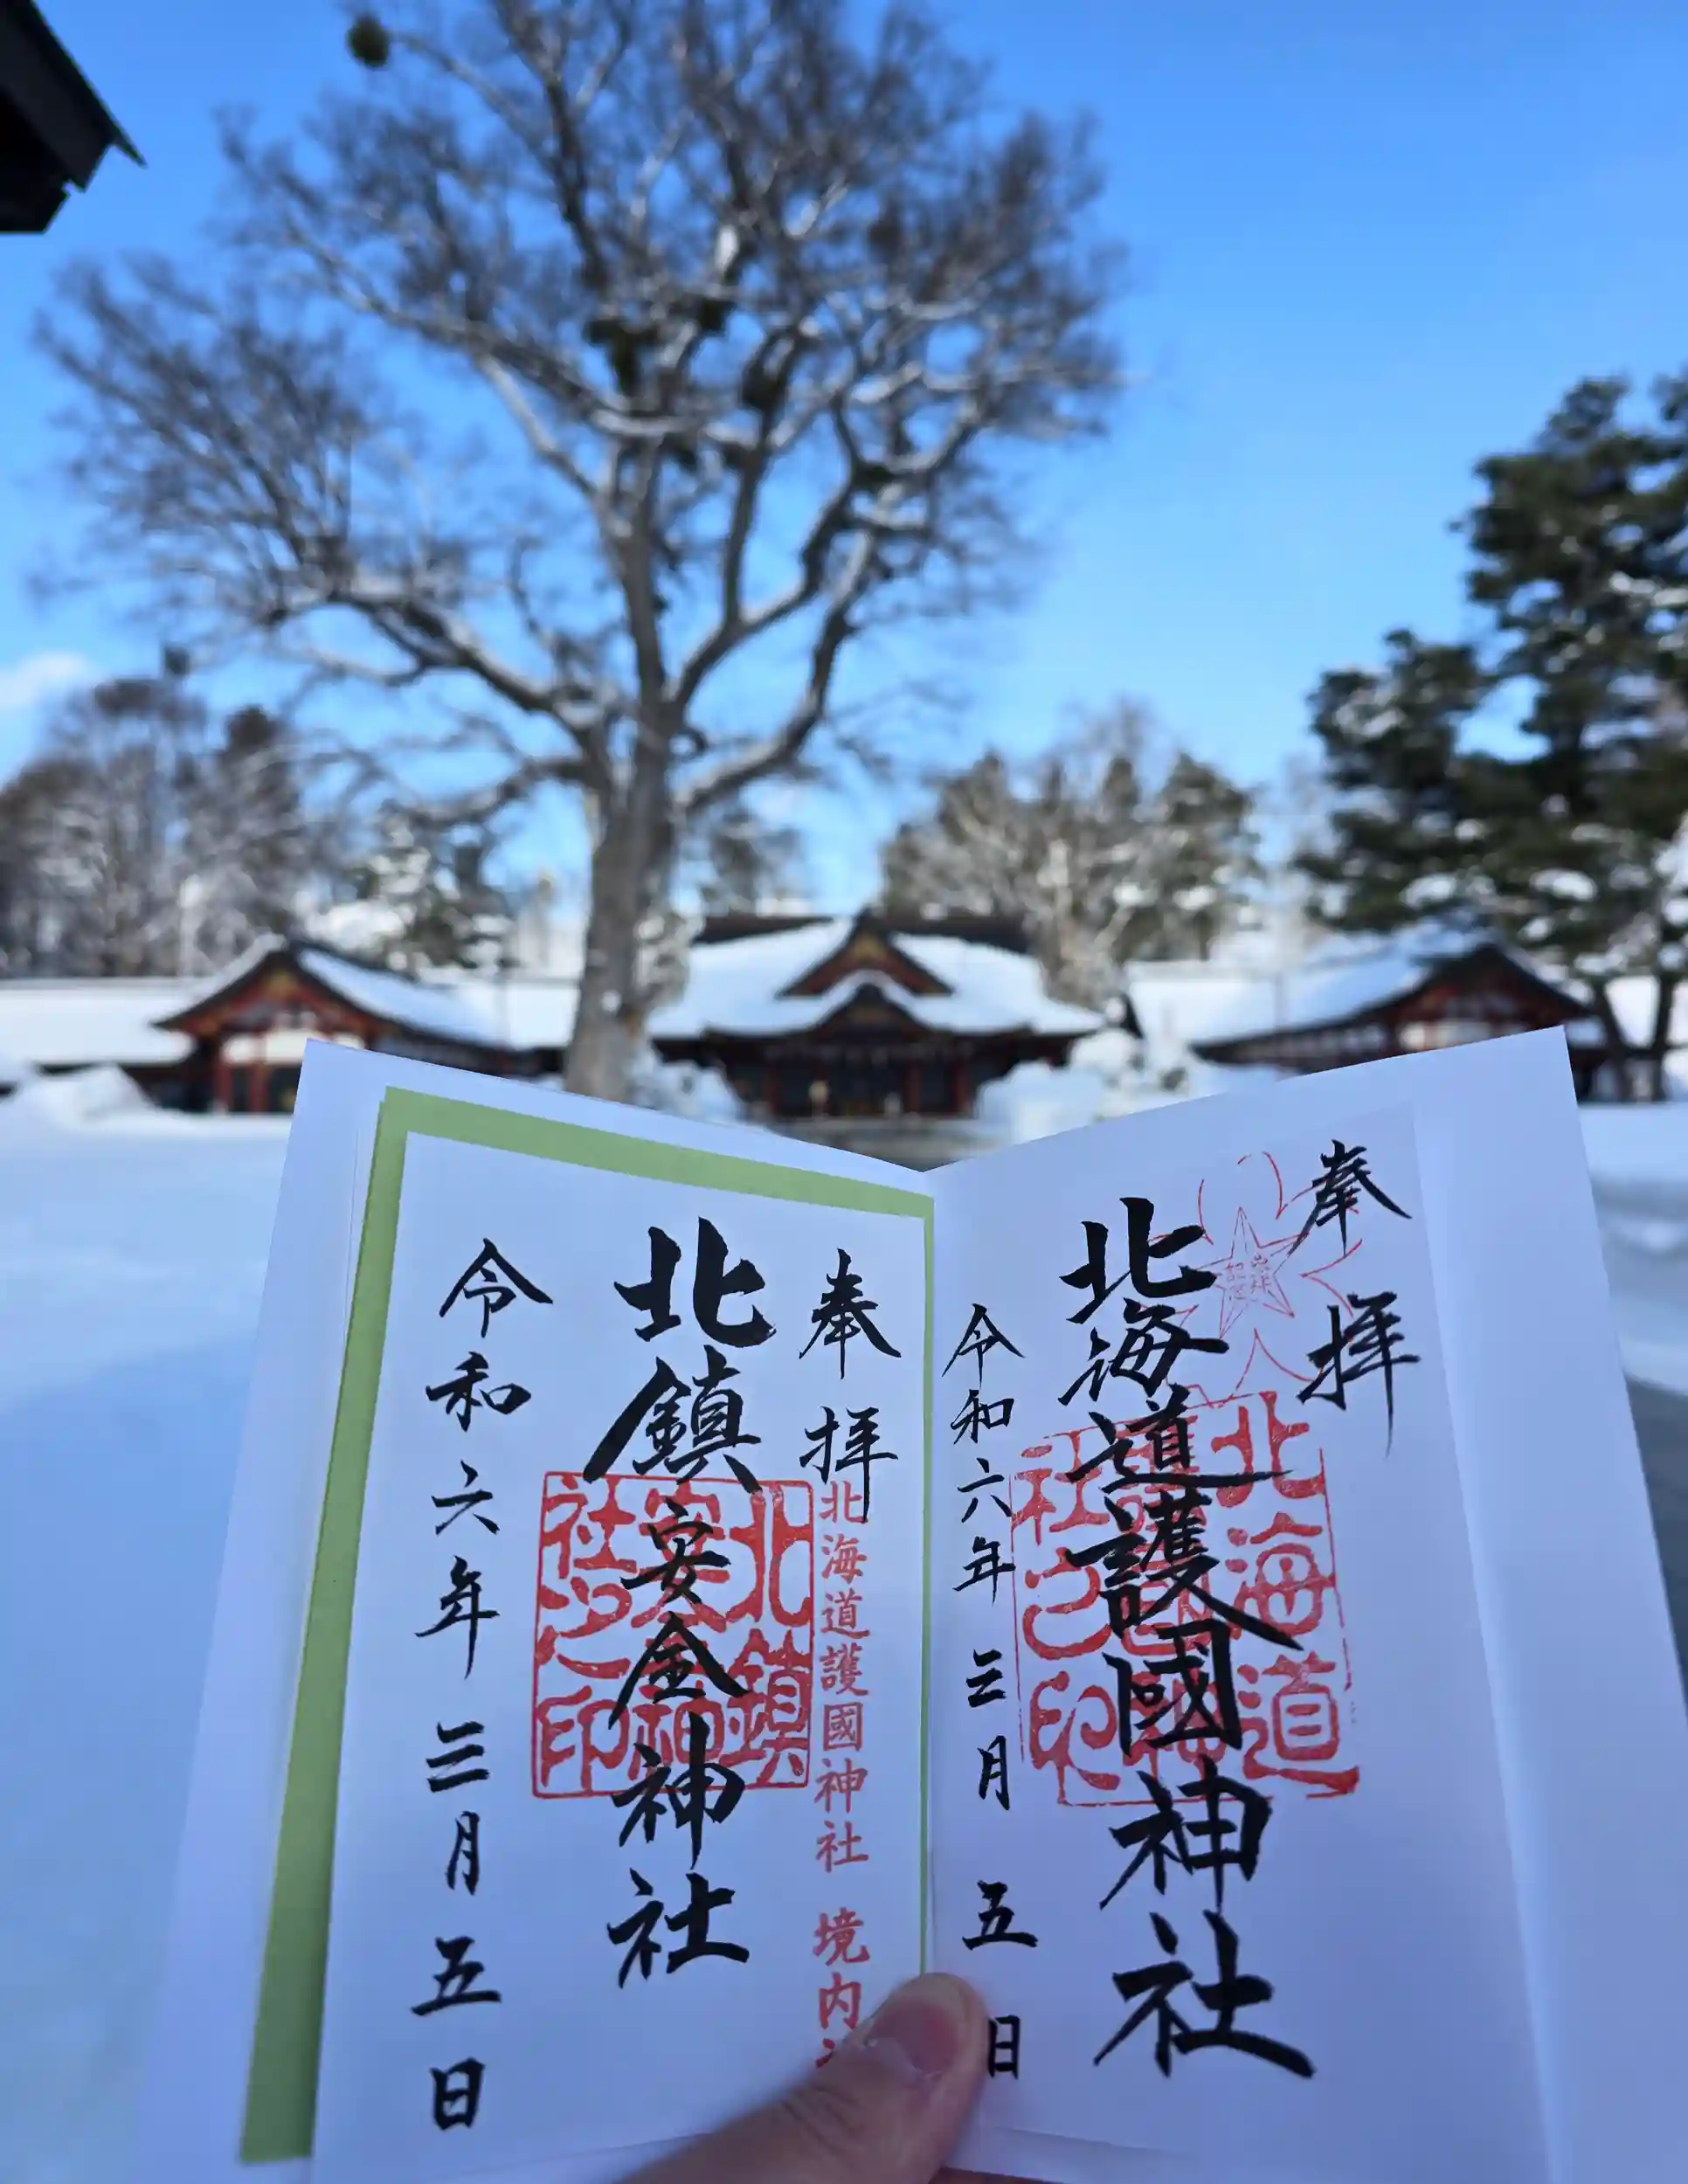 奉拝
北海道護國神社
北海道護國神社之印
令和六年三月五日
奉拝
北海道護國神社 境内
北鎮安全神社
北鎮安全神社之印
令和六年三月五日